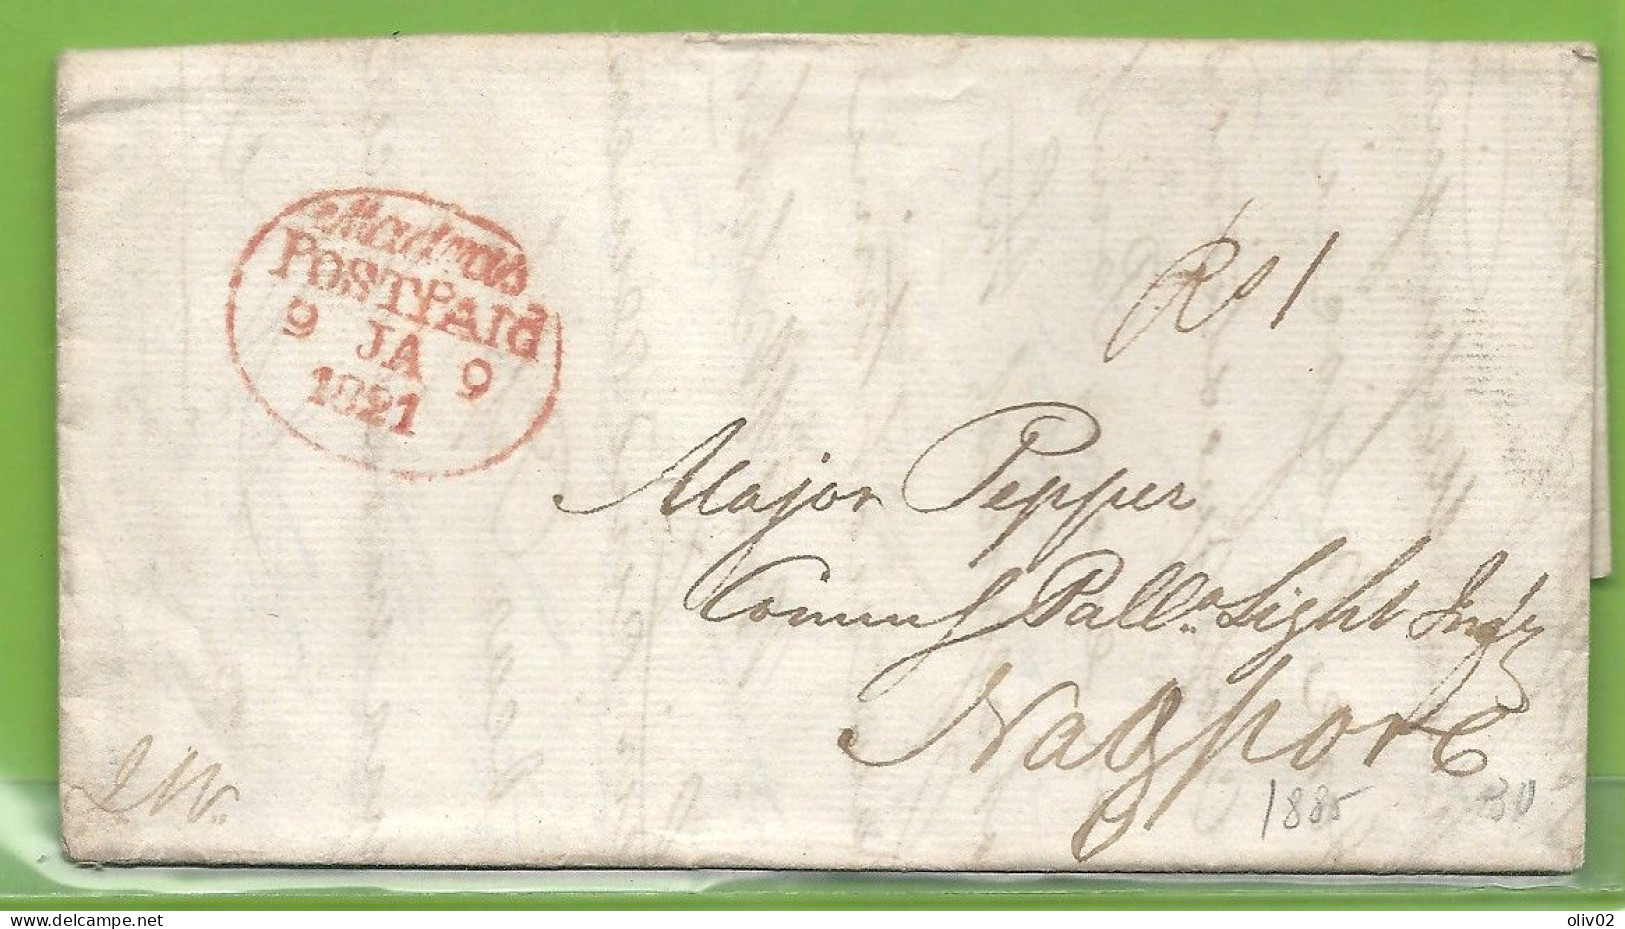 Madras
POSTPAId
9 JA 9
1821
Rs 1
Major Pepper
Comm^g Pall^n Light Inf^y
Nagpore
1885
oliv02